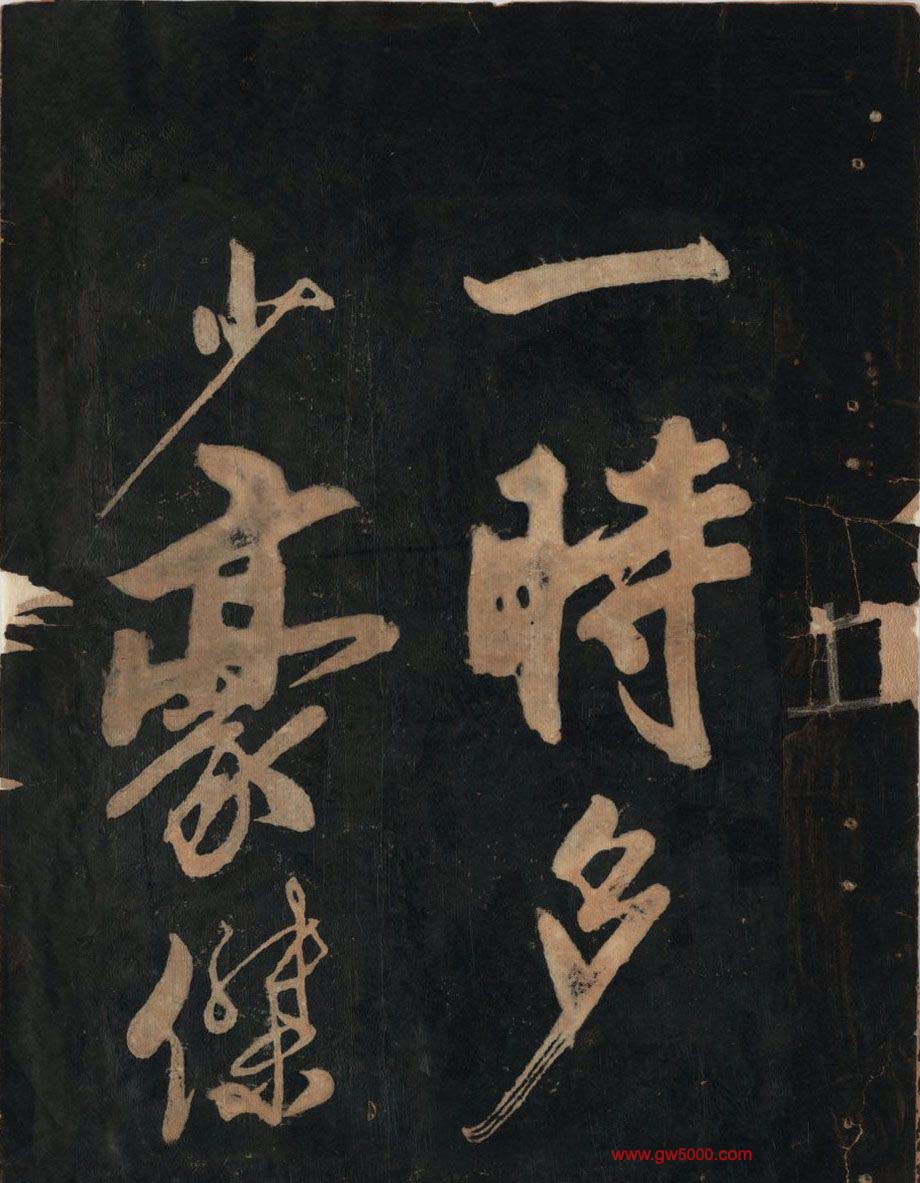 一時多
少豪傑
www.gw5000.com